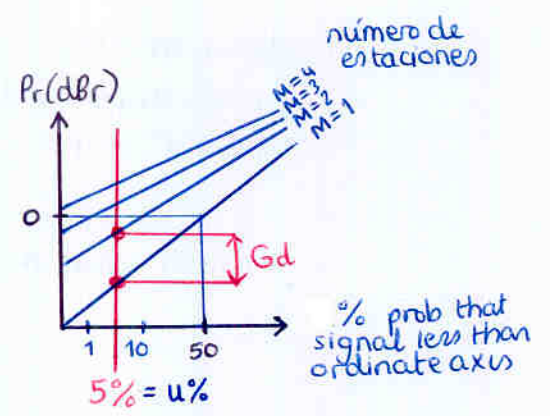 número de
estaciones
Pr(dBr)
M=4
M=3
M=2
M=1
0
Gd
1 10 50
5% = u%
% prob that
signal less than
ordinate axis